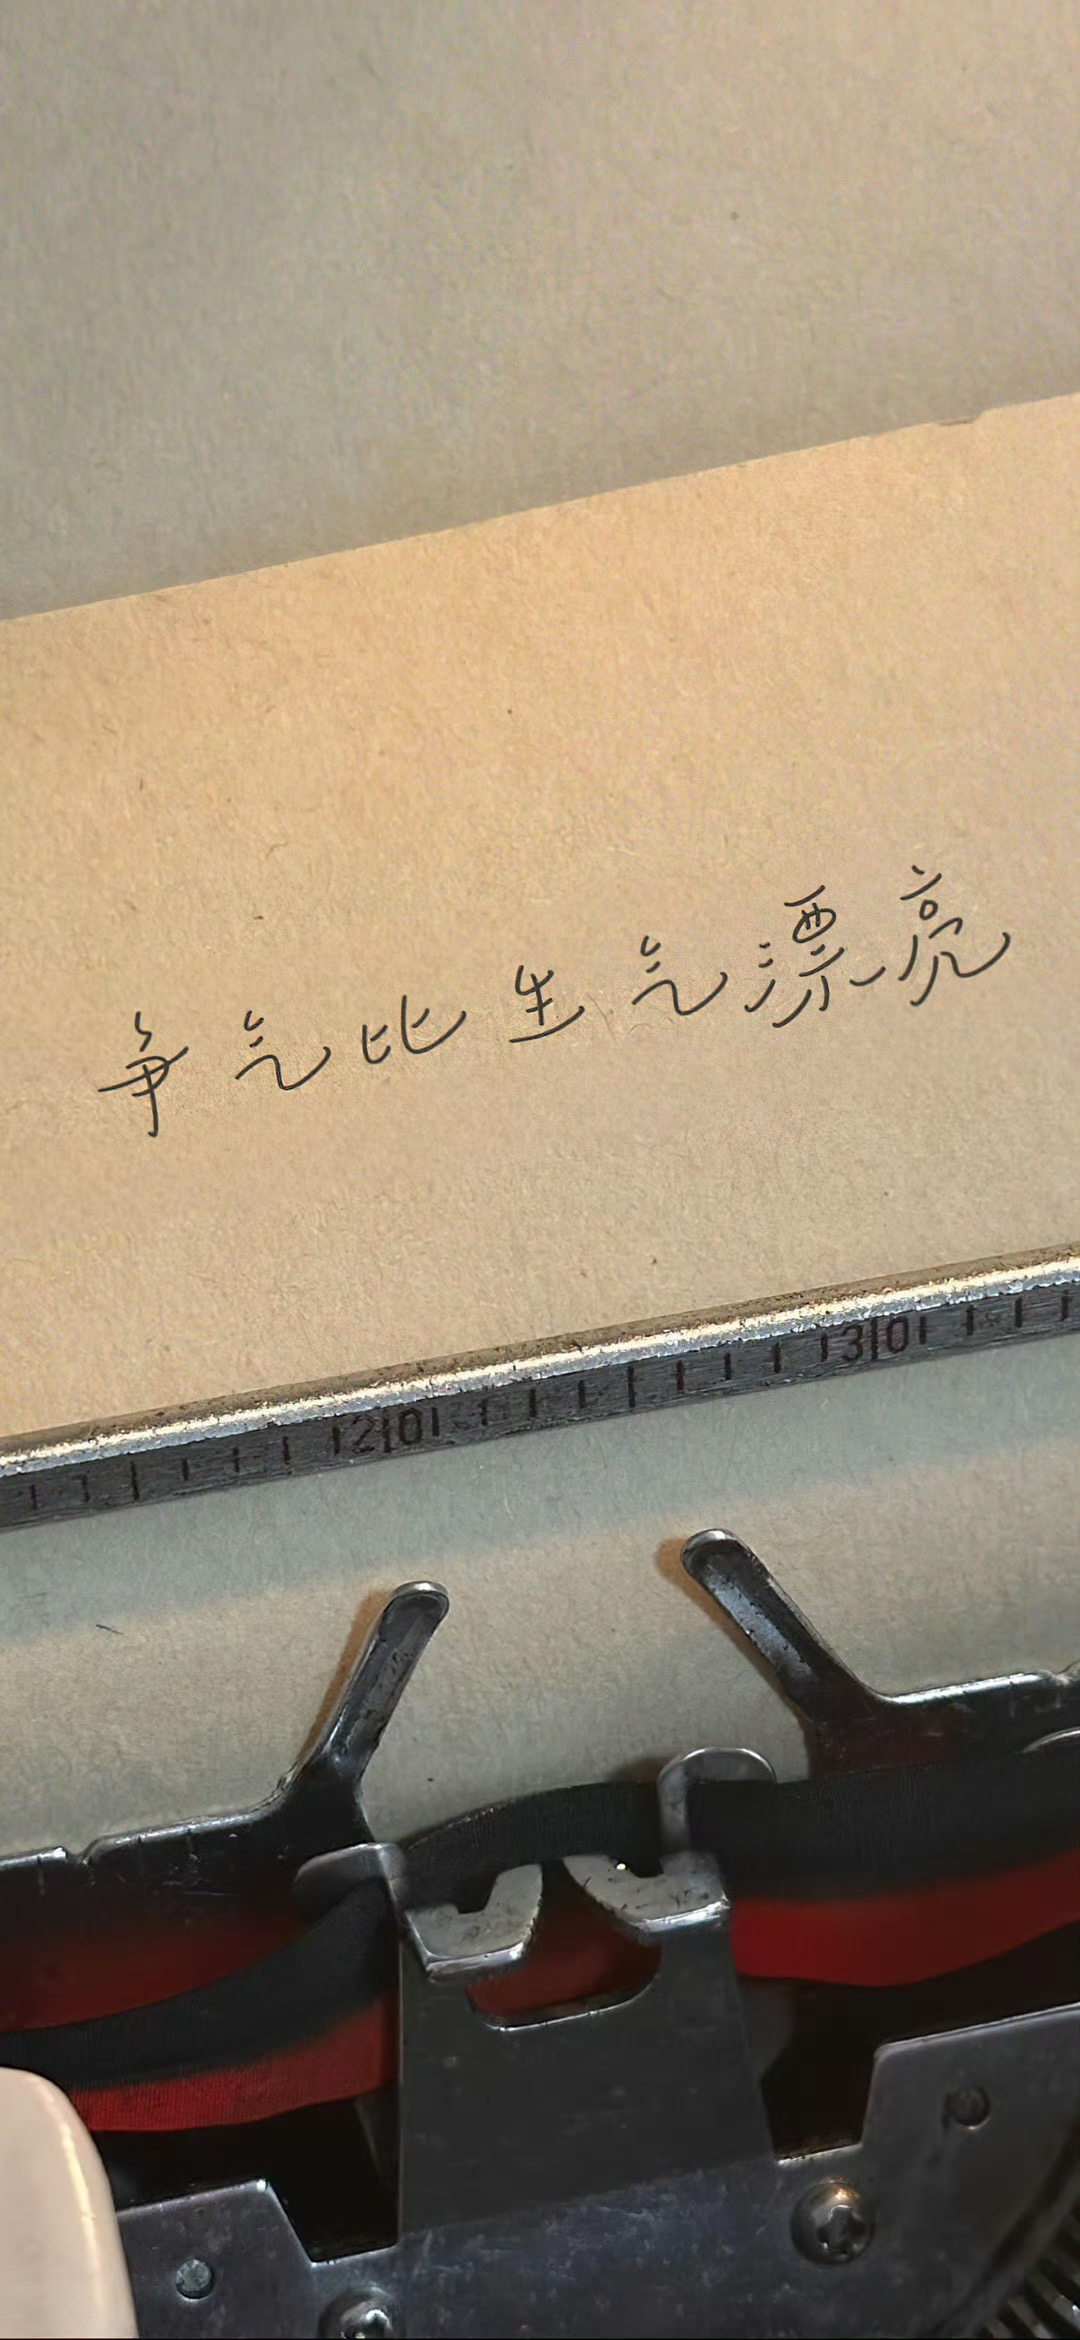 争气比生气漂亮
20
30